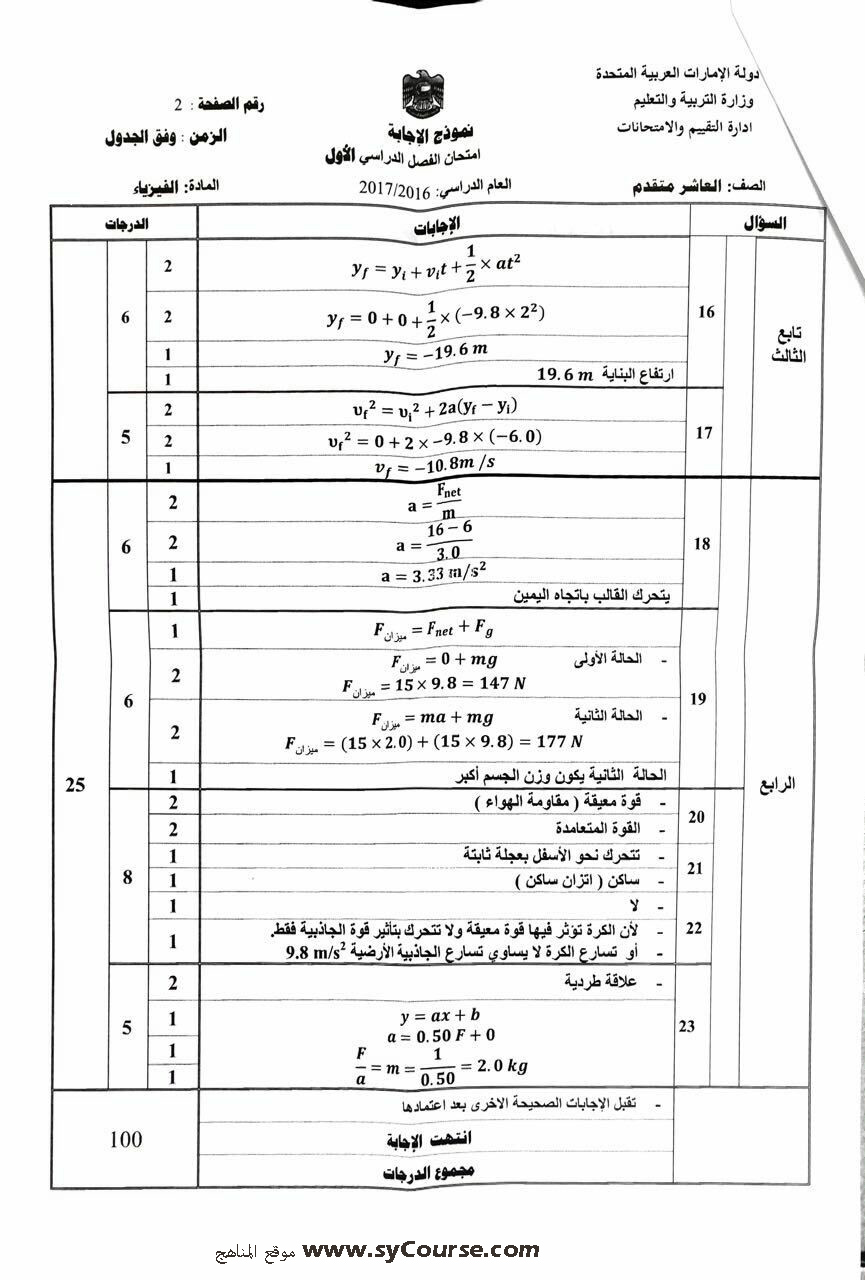 دولة الإمارات العربية المتحدة
وزارة التربية والتعليم
ادارة التقييم والامتحانات
نموذج الإجابة
امتحان الفصل الدراسي الأول
رقم الصفحة : 2
الزمن : وفق الجدول
الصف: العاشر متقدم
العام الدراسي: 2017/2016
المادة: الفيزياء
السؤال الإجابات الدرجات
تابع الثالث
16
y_f = y_i + v_i t + 1/2 × at² 2
y_f = 0 + 0 + 1/2 × (−9.8 × 2²) 2
y_f = −19.6 m 1
ارتفاع البناية 19.6 m 1
6
17
υ_f² = υ_i² + 2a(y_f − y_i) 2
υ_f² = 0 + 2 × −9.8 × (−6.0) 2
v_f = −10.8m /s 1
5
الرابع
18
a = F_net / m 2
a = 16 − 6 / 3.0 2
a = 3.33 m/s² 1
يتحرك القالب باتجاه اليمين 1
6
19
F_ميزان = F_net + F_g 1
- الحالة الأولى F_ميزان = 0 + mg
F_ميزان = 15 × 9.8 = 147 N 2
- الحالة الثانية F_ميزان = ma + mg
F_ميزان = (15 × 2.0) + (15 × 9.8) = 177 N 2
الحالة الثانية يكون وزن الجسم أكبر 1
6
20
- قوة معيقة ( مقاومة الهواء ) 2
- القوة المتعامدة 2
21
- تتحرك نحو الأسفل بعجلة ثابتة 1
- ساكن ( اتزان ساكن ) 1
22
- لا 1
- لأن الكرة تؤثر فيها قوة معيقة ولا تتحرك بتأثير قوة الجاذبية فقط.
- أو تسارع الكرة لا يساوي تسارع الجاذبية الأرضية 9.8 m/s² 1
8
23
- علاقة طردية 2
y = ax + b 1
a = 0.50 F + 0 1
F/a = m = 1/0.50 = 2.0 kg 1
5
25
- تقبل الإجابات الصحيحة الاخرى بعد اعتمادها
انتهت الإجابة
مجموع الدرجات
100
موقع المناهج www.syCourse.com